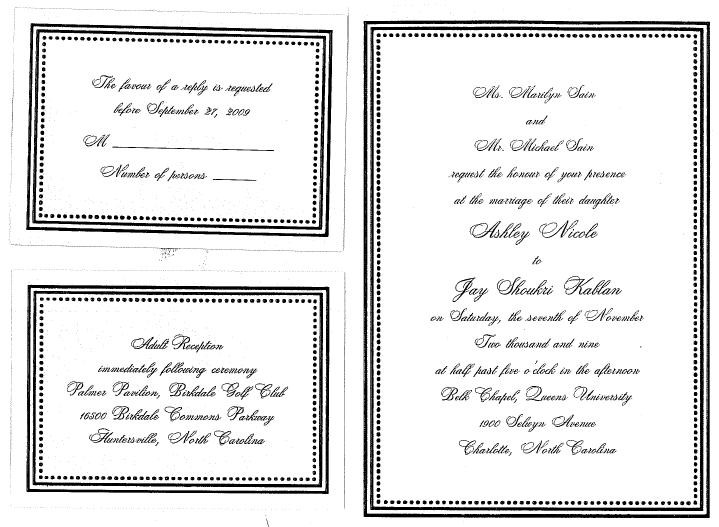 The favour of a reply is requested
before September 27, 2009
M
Number of persons
Adult Reception
immediately following ceremony
Palmer Pavilion, Birkdale Golf Club
16500 Birkdale Commons Parkway
Huntersville, North Carolina
Ms. Marilyn Sain
and
Mr. Michael Sain
request the honour of your presence
at the marriage of their daughter
Ashley Nicole
to
Jay Shoukri Kablan
on Saturday, the seventh of November
Two thousand and nine
at half past five o'clock in the afternoon
Belk Chapel, Queens University
1900 Selwyn Avenue
Charlotte, North Carolina